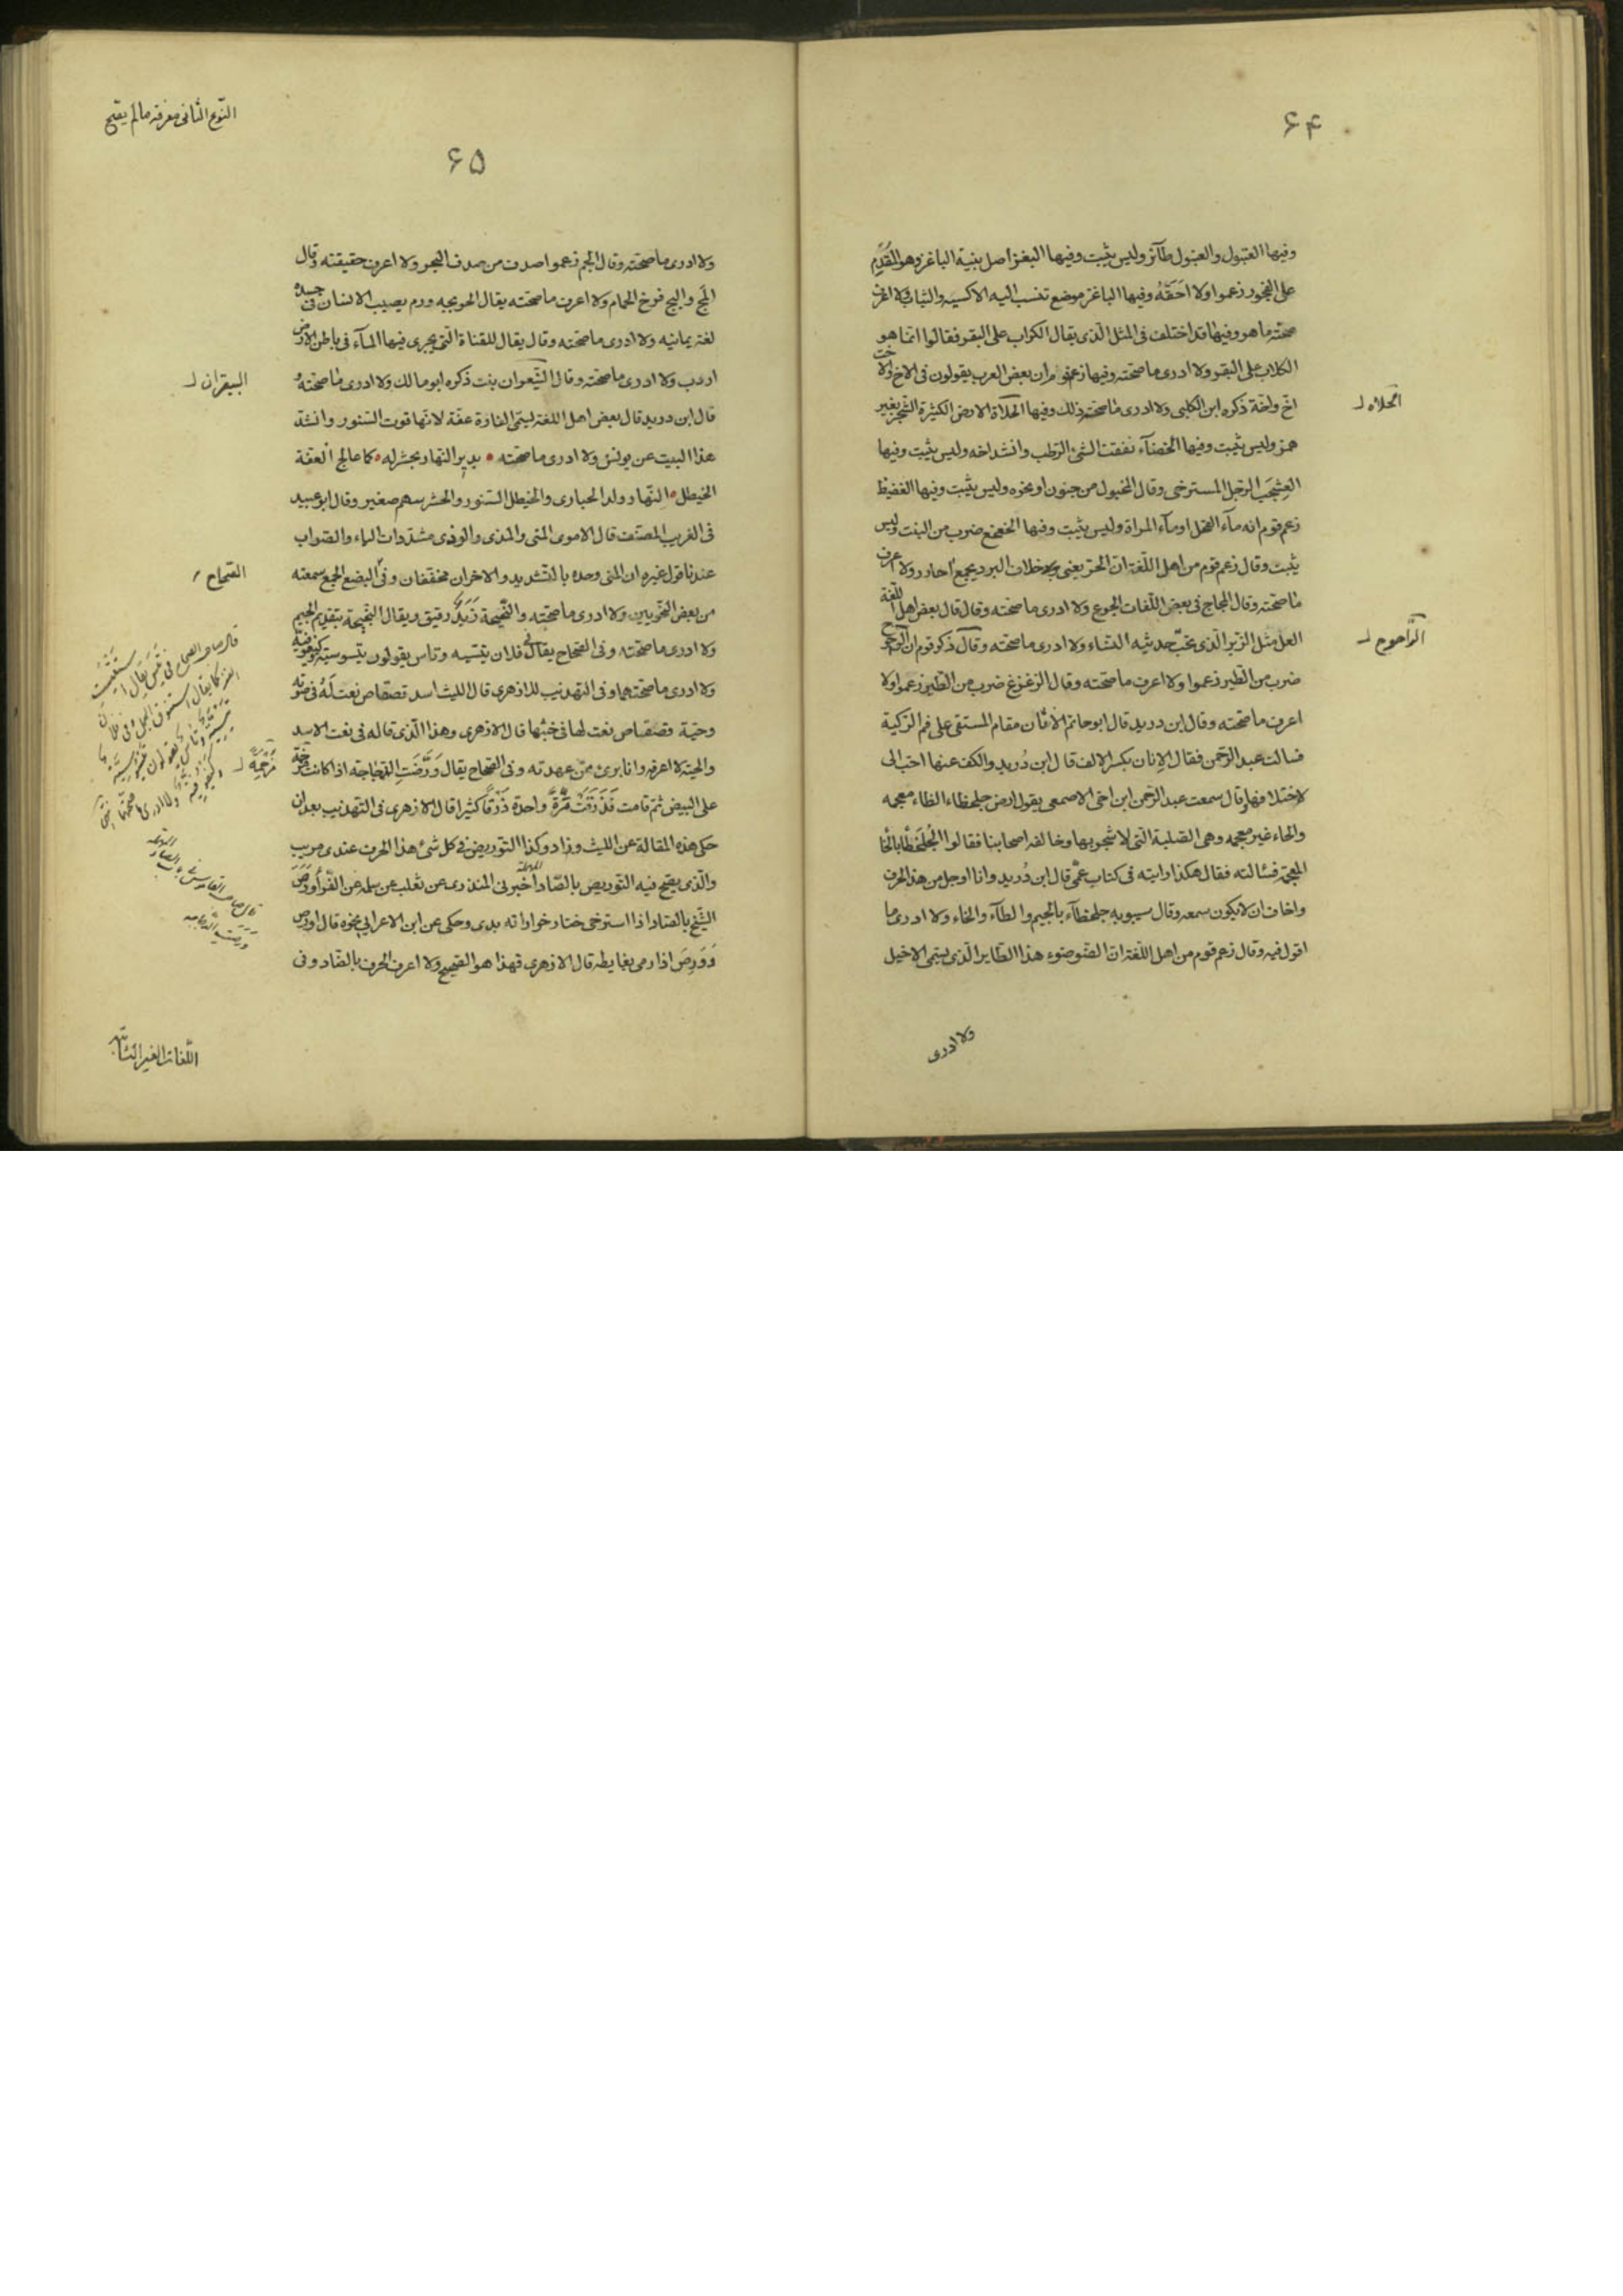 ۶۴
وفيها العبّول والعبّول طآئر وليس بثبت وفيها البغز أصل بنية الباغز وهو المُقدِّم
على الفجور زعموا ولا احقّه وفيها الباغز موضع تنسب اليه الاكسيه والثياب ولا اعرف
صحّته ما هو وفيها قد اختلف فى المثل الّذى يقال الكراب على البقر فقالوا انما هو
الكلاب على البقر ولا ادرى ما صحّته وفيها زعم قوم ان بعض العرب يقولون فى الاخ والاخت
اخّ واخّة ذكره ابن الكلبى ولا ادرى ما صحّة ذلك وفيها الحلاة الارض الكثيرة الشّجر بغير
الحلاه
همز وليس بثبت وفيها الخضآء تفتّت الشئ الرّطب وانشداخه وليس بثبت وفيها
العشجب الرّجل المسترخى وقال المخبول من جنون او نحوه وليس بثبت وفيها الفظيظ
زعم قوم انه مآء الفحل او مآء المراة وليس بثبت وفيها الخعخع ضرب من النبت وليس
بثبت وقال زعم قوم من اهل اللّغة انّ الحرّ يعنى خلاف البرد يجمع احارر ولا اعرف
ما صحّته وقال المجاج فى بعض اللّغات الجوع ولا ادرى ما صحّته وقال قال بعض اهل اللّغة
العل مثل الزّير الّذى يحبّ حديث النساء ولا ادرى ما صحّته وقال ذكر قوم ان الوحوح
ضرب من الطّير زعموا ولا اعرف ما صحّته وقال الزغزغ ضرب من الطّير زعموا ولا
اعرف ما صحّته وقال ابن دريد قال ابو حاتم الاتان مقام المستقى على فم الرّكية
فسالت عبد الرّحمن فقال الاتان بكسر الالف قال ابن دُريد والكف عنها احبّ الى
لاختلافهما وقال سمعت عبد الرّحمن ابن اخى الاصمعى يقول ارض جلحظاء الظاء معجمه
والحاء غير معجمه وهى الصّلبة الّتى لا شجر بها وخالفه اصحابنا فقالوا الجلخظا بالخا
المعجمة فسألته فقال هكذا رايته فى كتاب عمّى قال ابن دُريد وانا اوجل من هذا الحرف
واخاف ان لا يكون سمعه وقال سيبويه جلخطآء بالجيم والطآء والخاء ولا ادرى ما
اقول فيه وقال زعم قوم من اهل اللّغة انّ الضّوضوء هذا الطّاير الّذى يسمّى الاخيل
ولا ادرى
النّوع الثانى معرفة ما لم يصحّ
۶۵
ولا ادرى ما صحّته وقال الجم زعموا صدف من صدف البحر ولا اعرف حقيقته وقال
المج والبج فرخ الحمام ولا اعرف ما صحّته يقال الحوبجه ورم يصيب الانسان فى جسده
لغة يمانيه ولا ادرى ما صحّته وقال يقال للقناة الّتى يجرى فيها المآء فى باطن الارض
اردب ولا ادرى ما صحّته وقال نبت ذكره ابو مالك ولا ادرى ما صحّته
البيقران
قال ابن دريد قال بعض اهل اللغة ليسمّى الفارة عفّة لانّها قوت السّنور وانشد
هذا البيت عن يونس ولا ادرى ما صحّته يدير النّهار بجشر له كما عالج العفة
الخيطل النّهار ولد الحبارى والخيطل السّنور والحشر سهم صغير وقال ابو عبيد
فى الغريب المصنّف قال الاموى المنى والمذى والودى مشدّدات الياء والصّواب
عندنا قول غيره ان المنى وحده بالتّشديد والاخران مخفّفان وفى البضع الجمع سمعته
من بعض النّحويين ولا ادرى ما صحّته والنّجيحة زَبَدٌ رقيق ويقال النّجيحة بتقديم الجيم
ولا ادرى ما صحّته وفى الصّحاح يقال فى فلان تيسيه وناس يقولون تيسوسيّه وكيفوفيّه
ولا ادرى ما صحّتهما وفى التهذيب للازهرى قال الليث اسد قصقاص نعت له فى صوته
وحيّة قصقاص نعت لها فى خبثها قال الازهرى وهذا الّذى قاله فى نعت الاسد
والحيّة لا اعرفه وانا برئ من عهدته وفى الصّحاح يقال وَرَّضَتِ الدّجاجة اذا كانت مرخّمة
على البيض ثمّ قامت فَذَرَقَت بمرّة واحدة ذَرْقاً كثيرا قال الازهرى فى التهذيب بعد ان
حكى هذه المقالة عن الليث وزاد وكذا التّوريض فى كل شئ هذا الحرف عندى مريب
والّذى يصحّ فيه التّوريص بالصّاد اخبرنى المنذرى عن ثعلب عن سلمه عن الفّراء وَرَّصَ
الشّيخ بالصّاد اذا استرخى حتار خورانه بدى وحكى عن ابن الاعرابى نحوه قال اورص
وَوَرّص اذا رمى بغايطه قال الازهرى فهذا هو الصّحيح ولا اعرف الحرف بالضّاد وفى
اللّغات الغير الثابته